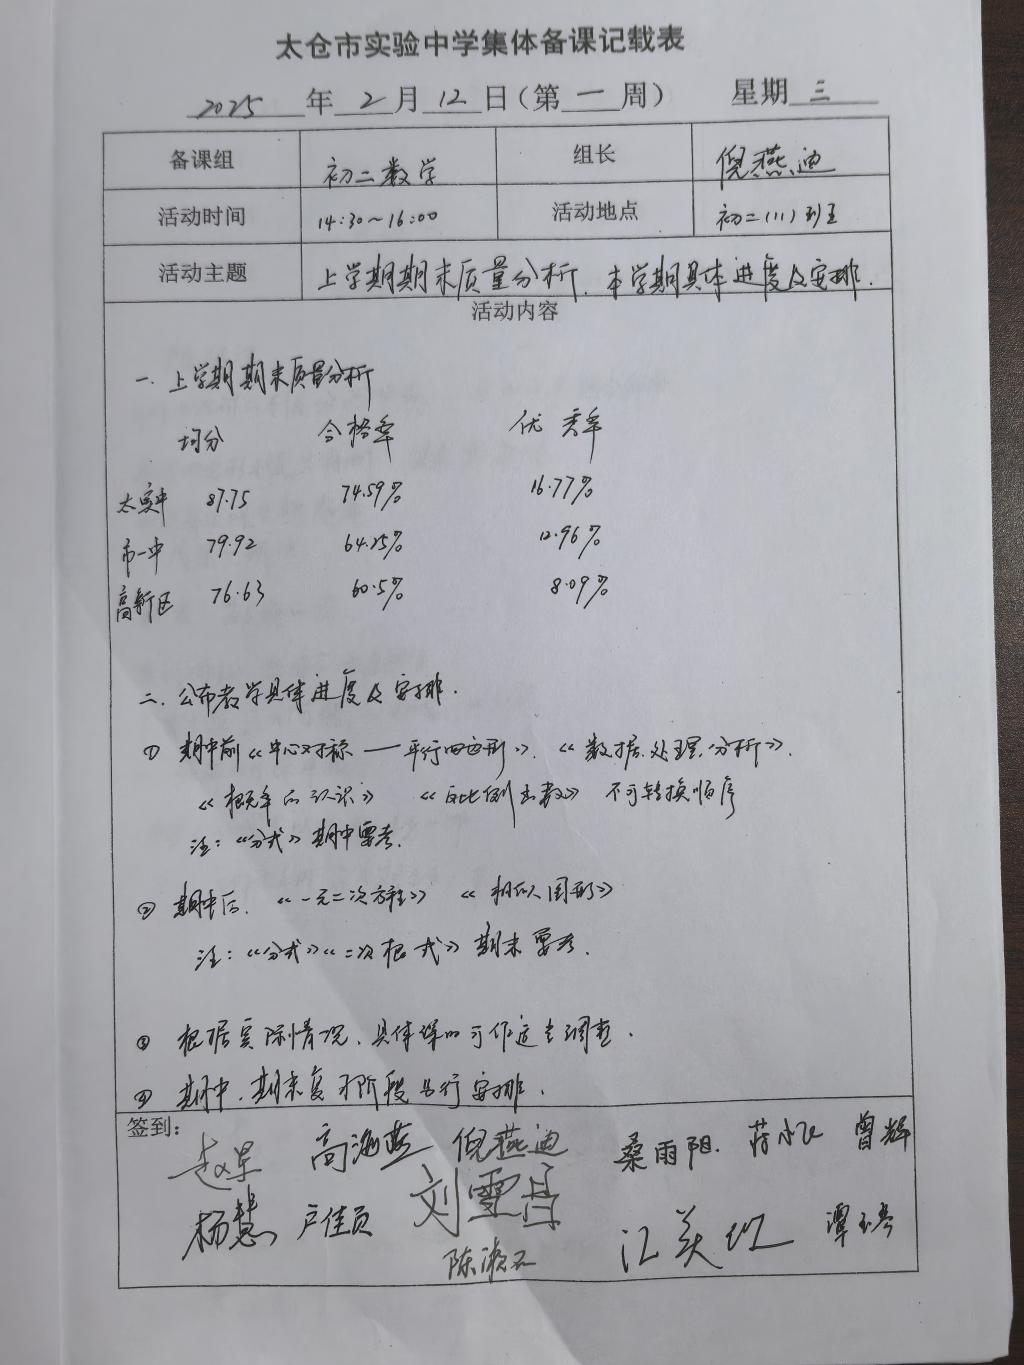 太仓市实验中学集体备课记载表
2025年2月12日(第一周) 星期三
备课组 初二数学 组长 倪燕迪
活动时间 14:30~16:00 活动地点 初二(11)班
活动主题 上学期期末质量分析、本学期具体进度及安排.
活动内容
一. 上学期期末质量分析
均分 合格率 优秀率
太实中 87.75 74.59% 16.77%
市一中 79.92 64.25% 12.96%
高新区 76.63 60.5% 8.09%
二. 公布教学具体进度及安排.
① 期中前《中心对称——平行四边形》、《数据处理分析》.
《概率的认识》 《反比例函数》 不可转换顺序
注:《分式》期中要考.
② 期中后.《一元二次方程》 《相似图形》
注:《分式》《二次根式》期末要考.
③ 根据实际情况,具体课时可作适当调整.
④ 期中、期末复习阶段另行安排.
签到:
高海燕 倪燕迪 桑雨阳 曾辉
杨慧 卢佳员 刘雪